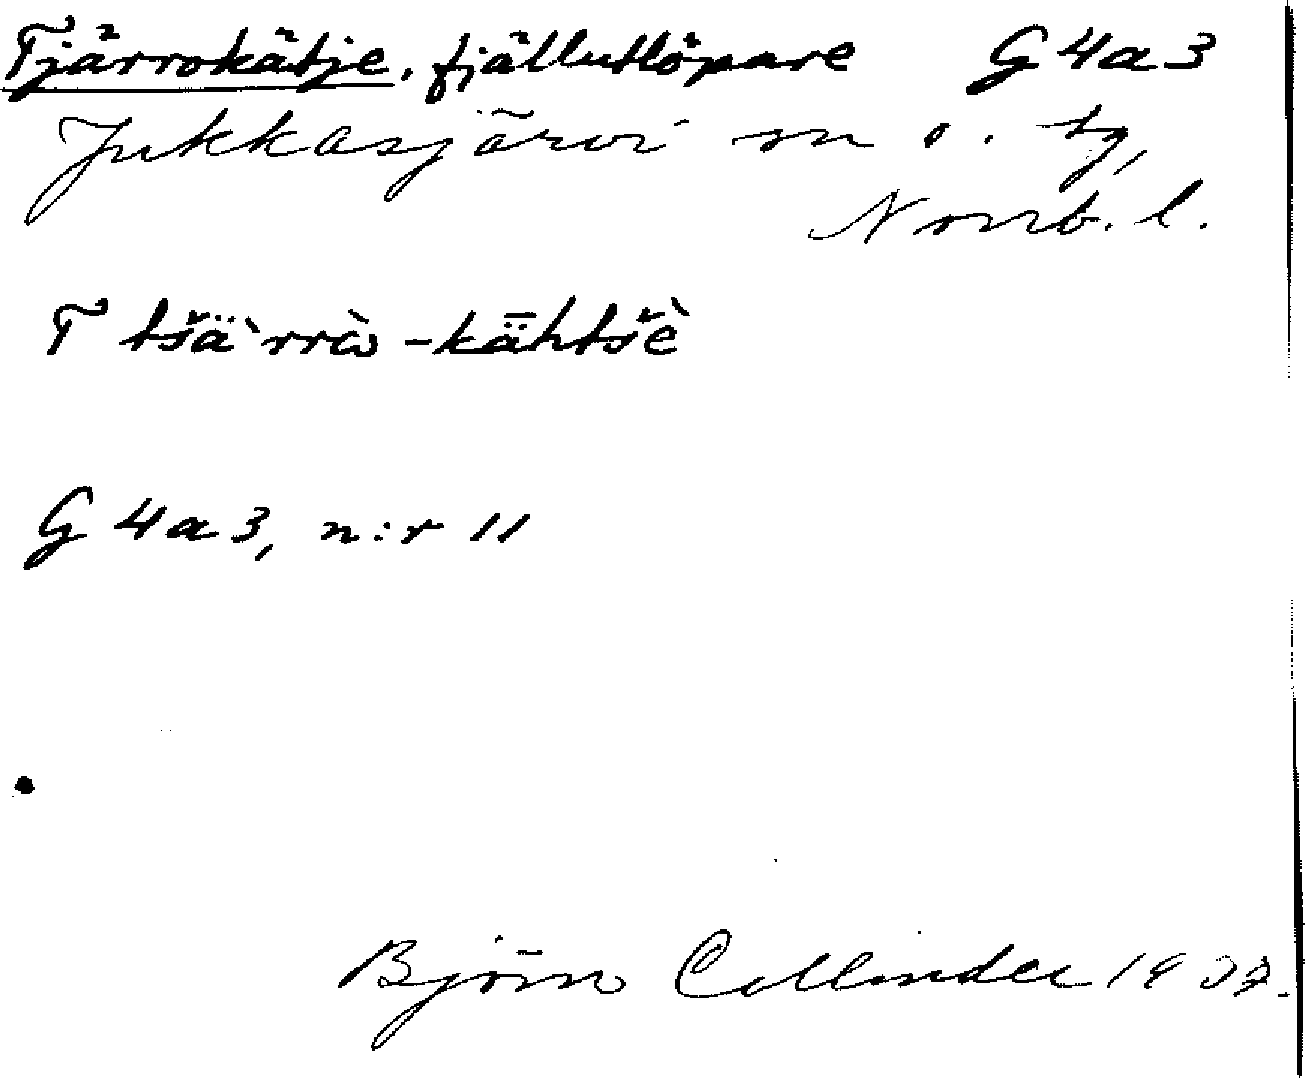 Tjärrokätje, fjällutlöpare G4a3
Jukkasjärvi sn o. tg,
Norrb. l.
T tšä̀rrò̱ -kǟhtšè
G4a3, n:r 11
Björn Collinder